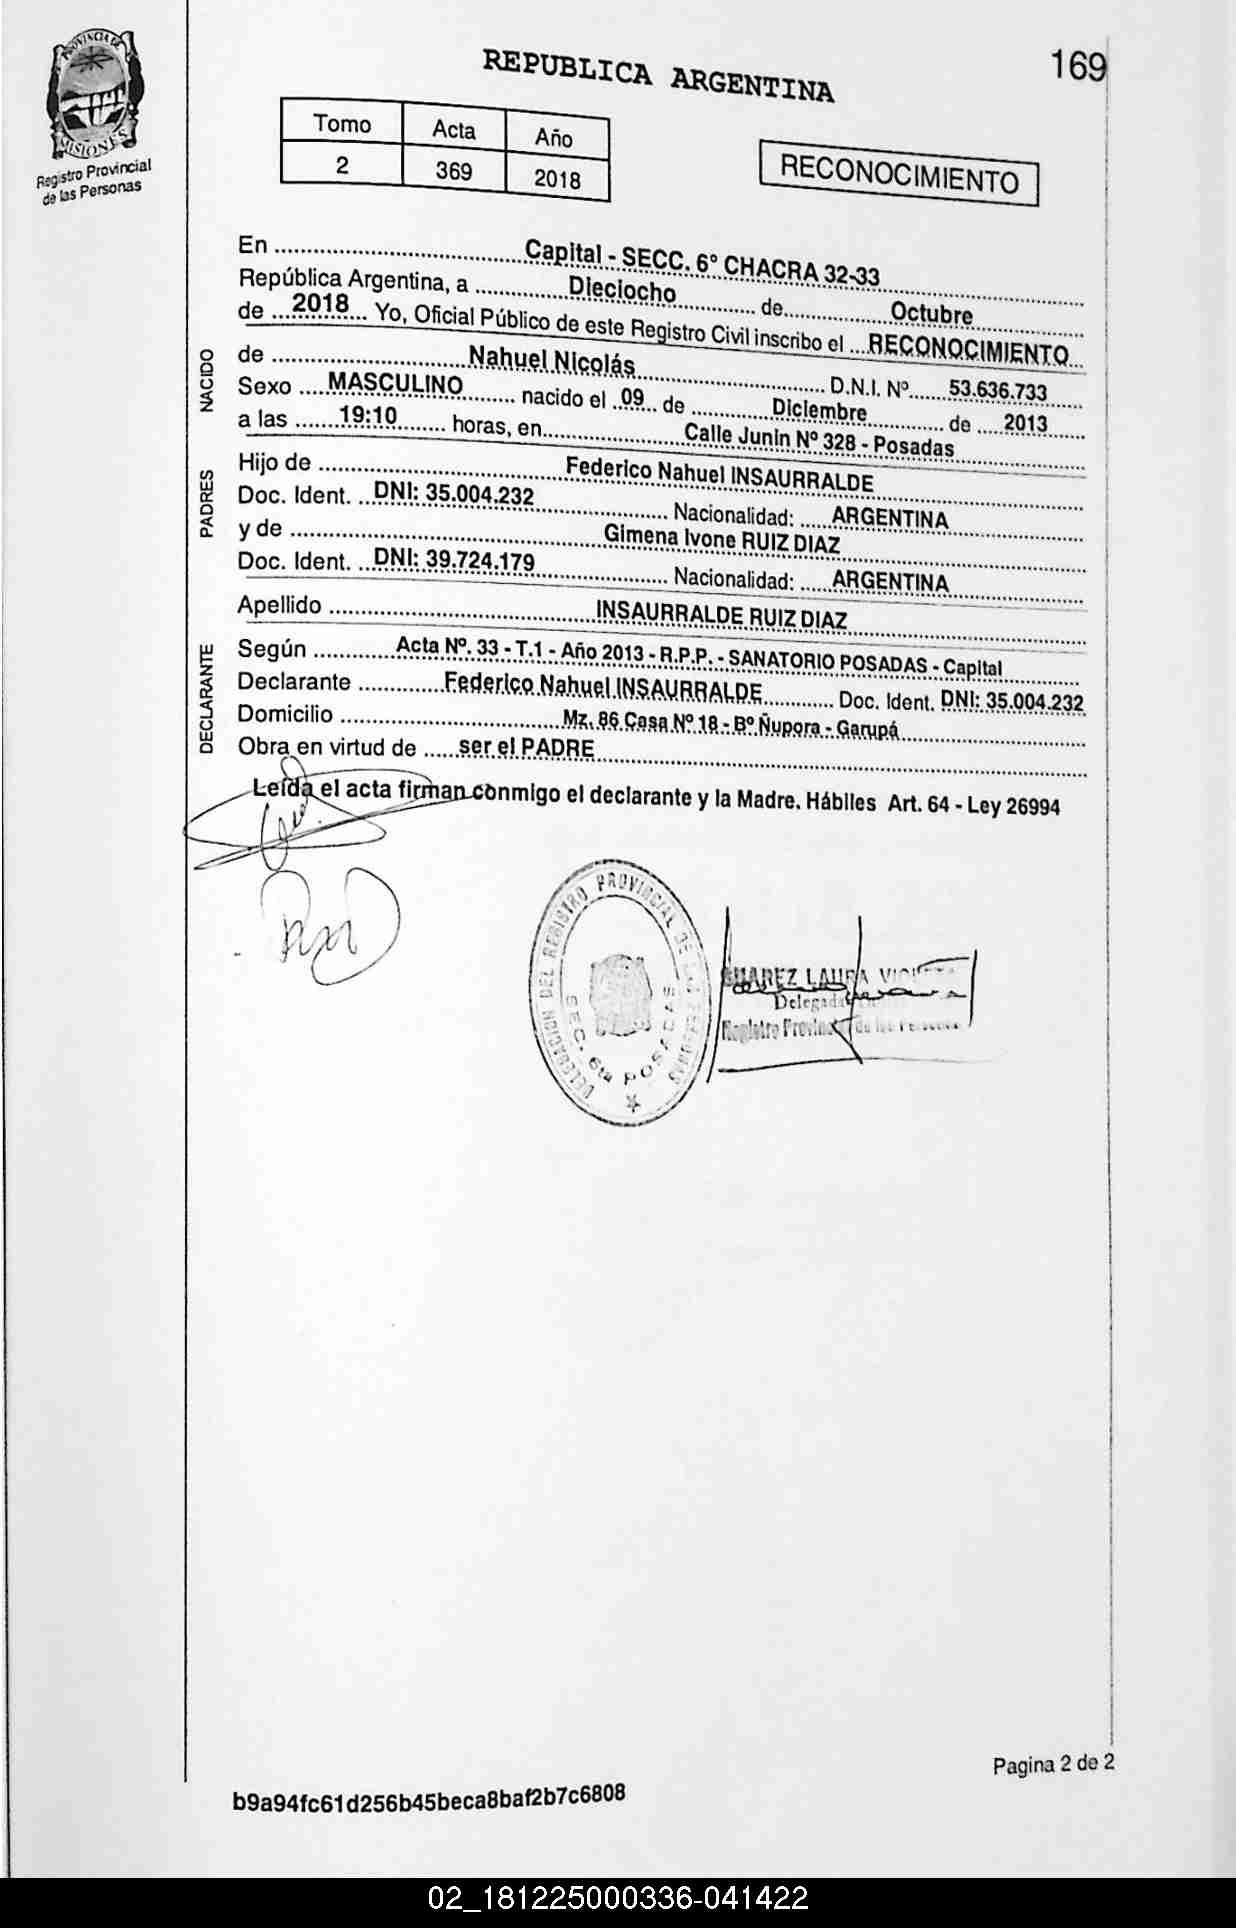 PROVINCIA DE
MISIONES
Registro Provincial
de las Personas
REPUBLICA ARGENTINA
169
Tomo Acta Año
2 369 2018
RECONOCIMIENTO
En Capital - SECC. 6° CHACRA 32-33
República Argentina, a Dieciocho de Octubre
de 2018 Yo, Oficial Público de este Registro Civil inscribo el RECONOCIMIENTO
NACIDO
de Nahuel Nicolás D.N.I. Nº 53.636.733
Sexo MASCULINO nacido el 09 de Diciembre de 2013
a las 19:10 horas, en Calle Junin Nº 328 - Posadas
PADRES
Hijo de Federico Nahuel INSAURRALDE
Doc. Ident. DNI: 35.004.232 Nacionalidad: ARGENTINA
y de Gimena Ivone RUIZ DIAZ
Doc. Ident. DNI: 39.724.179 Nacionalidad: ARGENTINA
Apellido INSAURRALDE RUIZ DIAZ
DECLARANTE
Según Acta Nº. 33 - T.1 - Año 2013 - R.P.P. - SANATORIO POSADAS - Capital
Declarante Federico Nahuel INSAURRALDE Doc. Ident. DNI: 35.004.232
Domicilio Mz. 86 Casa Nº 18 - Bº Ñupora - Garupá
Obra en virtud de ser el PADRE
Leída el acta firman conmigo el declarante y la Madre. Hábiles Art. 64 - Ley 26994
DELEGACION DEL REGISTRO PROVINCIAL DE LAS PERSONAS
SEC. 6ta POSADAS
SUAREZ LAURA
Delegada
Registro Provincial de las Personas
Pagina 2 de 2
b9a94fc61d256b45beca8baf2b7c6808
02_181225000336-041422